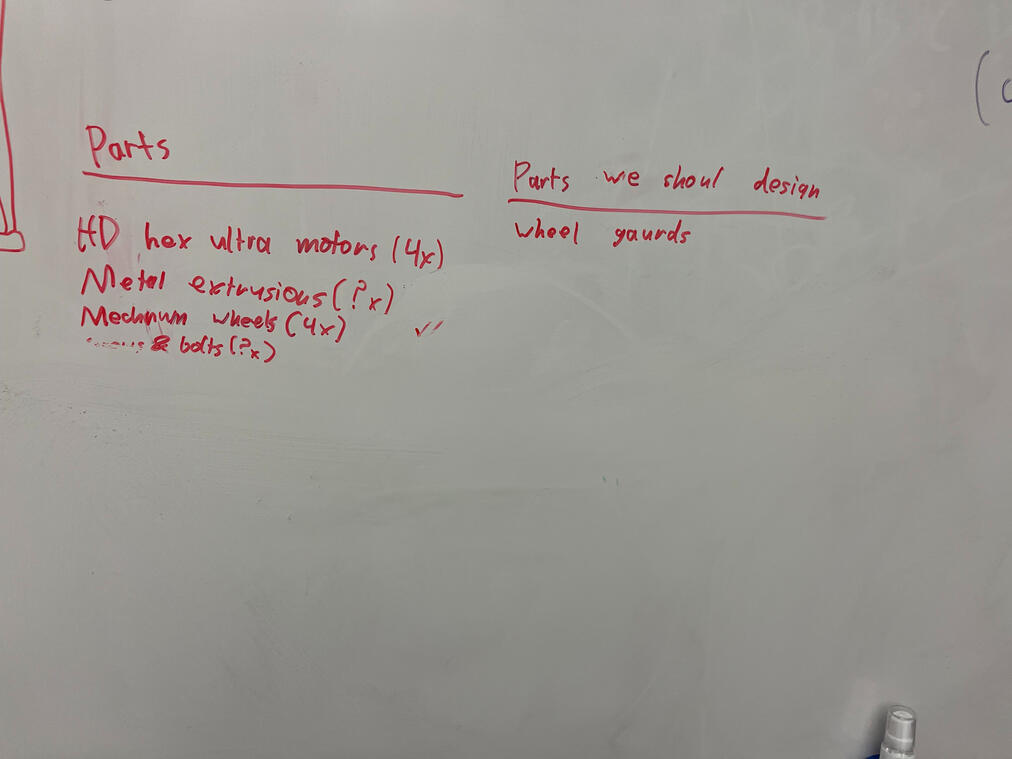 Parts
HD hex ultra motors (4x)
Metal extrusions (?x)
Mechnum wheels (4x)
& bolts (?x)
Parts we shoul design
wheel gaurds